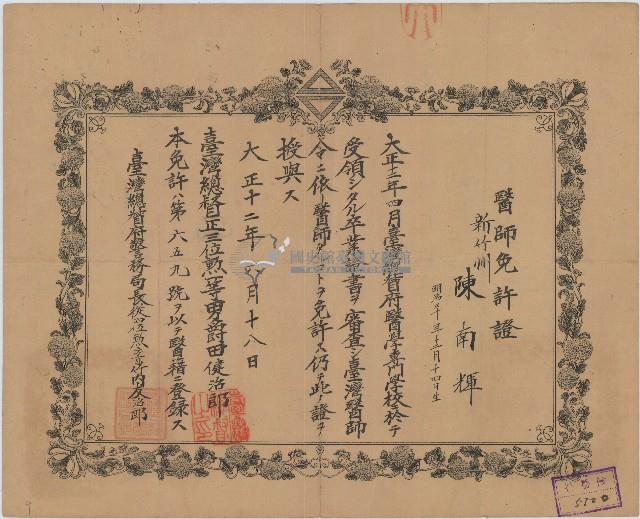 醫師免許證
新竹州
陳南輝
明治三十三年十二月十四日生
大正十二年四月臺灣總督府醫學專門學校於テ
受領シタル卒業證書ヲ審査シ臺灣醫師
令ニ依リ醫師タルコトヲ免許ス仍テ此ノ證ヲ
授與ス
大正十二年 月十八日
臺灣總督正三位勲一等男爵田健治郎
本免許ハ第六五九號ヲ以テ醫籍ニ登録ス
臺灣總督府警務局長從四位勲三等竹內友治郎
國史館臺灣文獻館
TAIWAN HISTORICA
5700